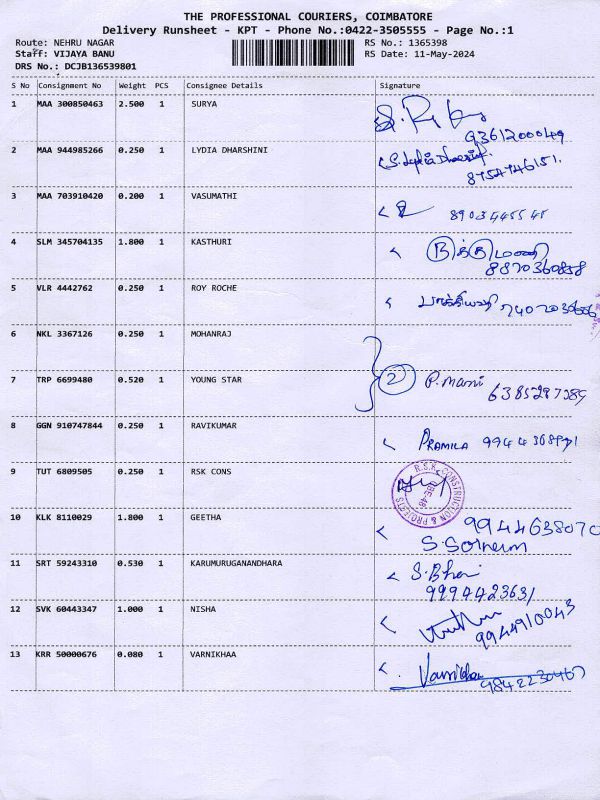 THE PROFESSIONAL COURIERS, COIMBATORE
Delivery Runsheet - KPT - Phone No.:0422-3505555 - Page No.:1
Route: NEHRU NAGAR RS No.: 1365398
Staff: VIJAYA BANU RS Date: 11-May-2024
DRS No.: DCJB136539801
S No Consignment No Weight PCS Consignee Details Signature
1 MAA 300850463 2.500 1 SURYA
9361200049
2 MAA 944985266 0.250 1 LYDIA DHARSHINI S. Lydia Dharshini
8754746151.
3 MAA 703910420 0.200 1 VASUMATHI
4 SLM 345704135 1.800 1 KASTHURI
8870360858
5 VLR 4442762 0.250 1 ROY ROCHE
6 NKL 3367126 0.250 1 MOHANRAJ
7 TRP 6699480 0.520 1 YOUNG STAR 2 P. Mani
8 GGN 910747844 0.250 1 RAVIKUMAR PRAMILA
9 TUT 6809505 0.250 1 RSK CONS R.S.K. CONSTRUCTION & PROJECTS
10 KLK 8110029 1.800 1 GEETHA 9944638070
11 SRT 59243310 0.530 1 KARUMURUGANANDHARA
9994423631
12 SVK 60443347 1.000 1 NISHA
9944910043
13 KRR 50000676 0.080 1 VARNIKHAA
9842230467